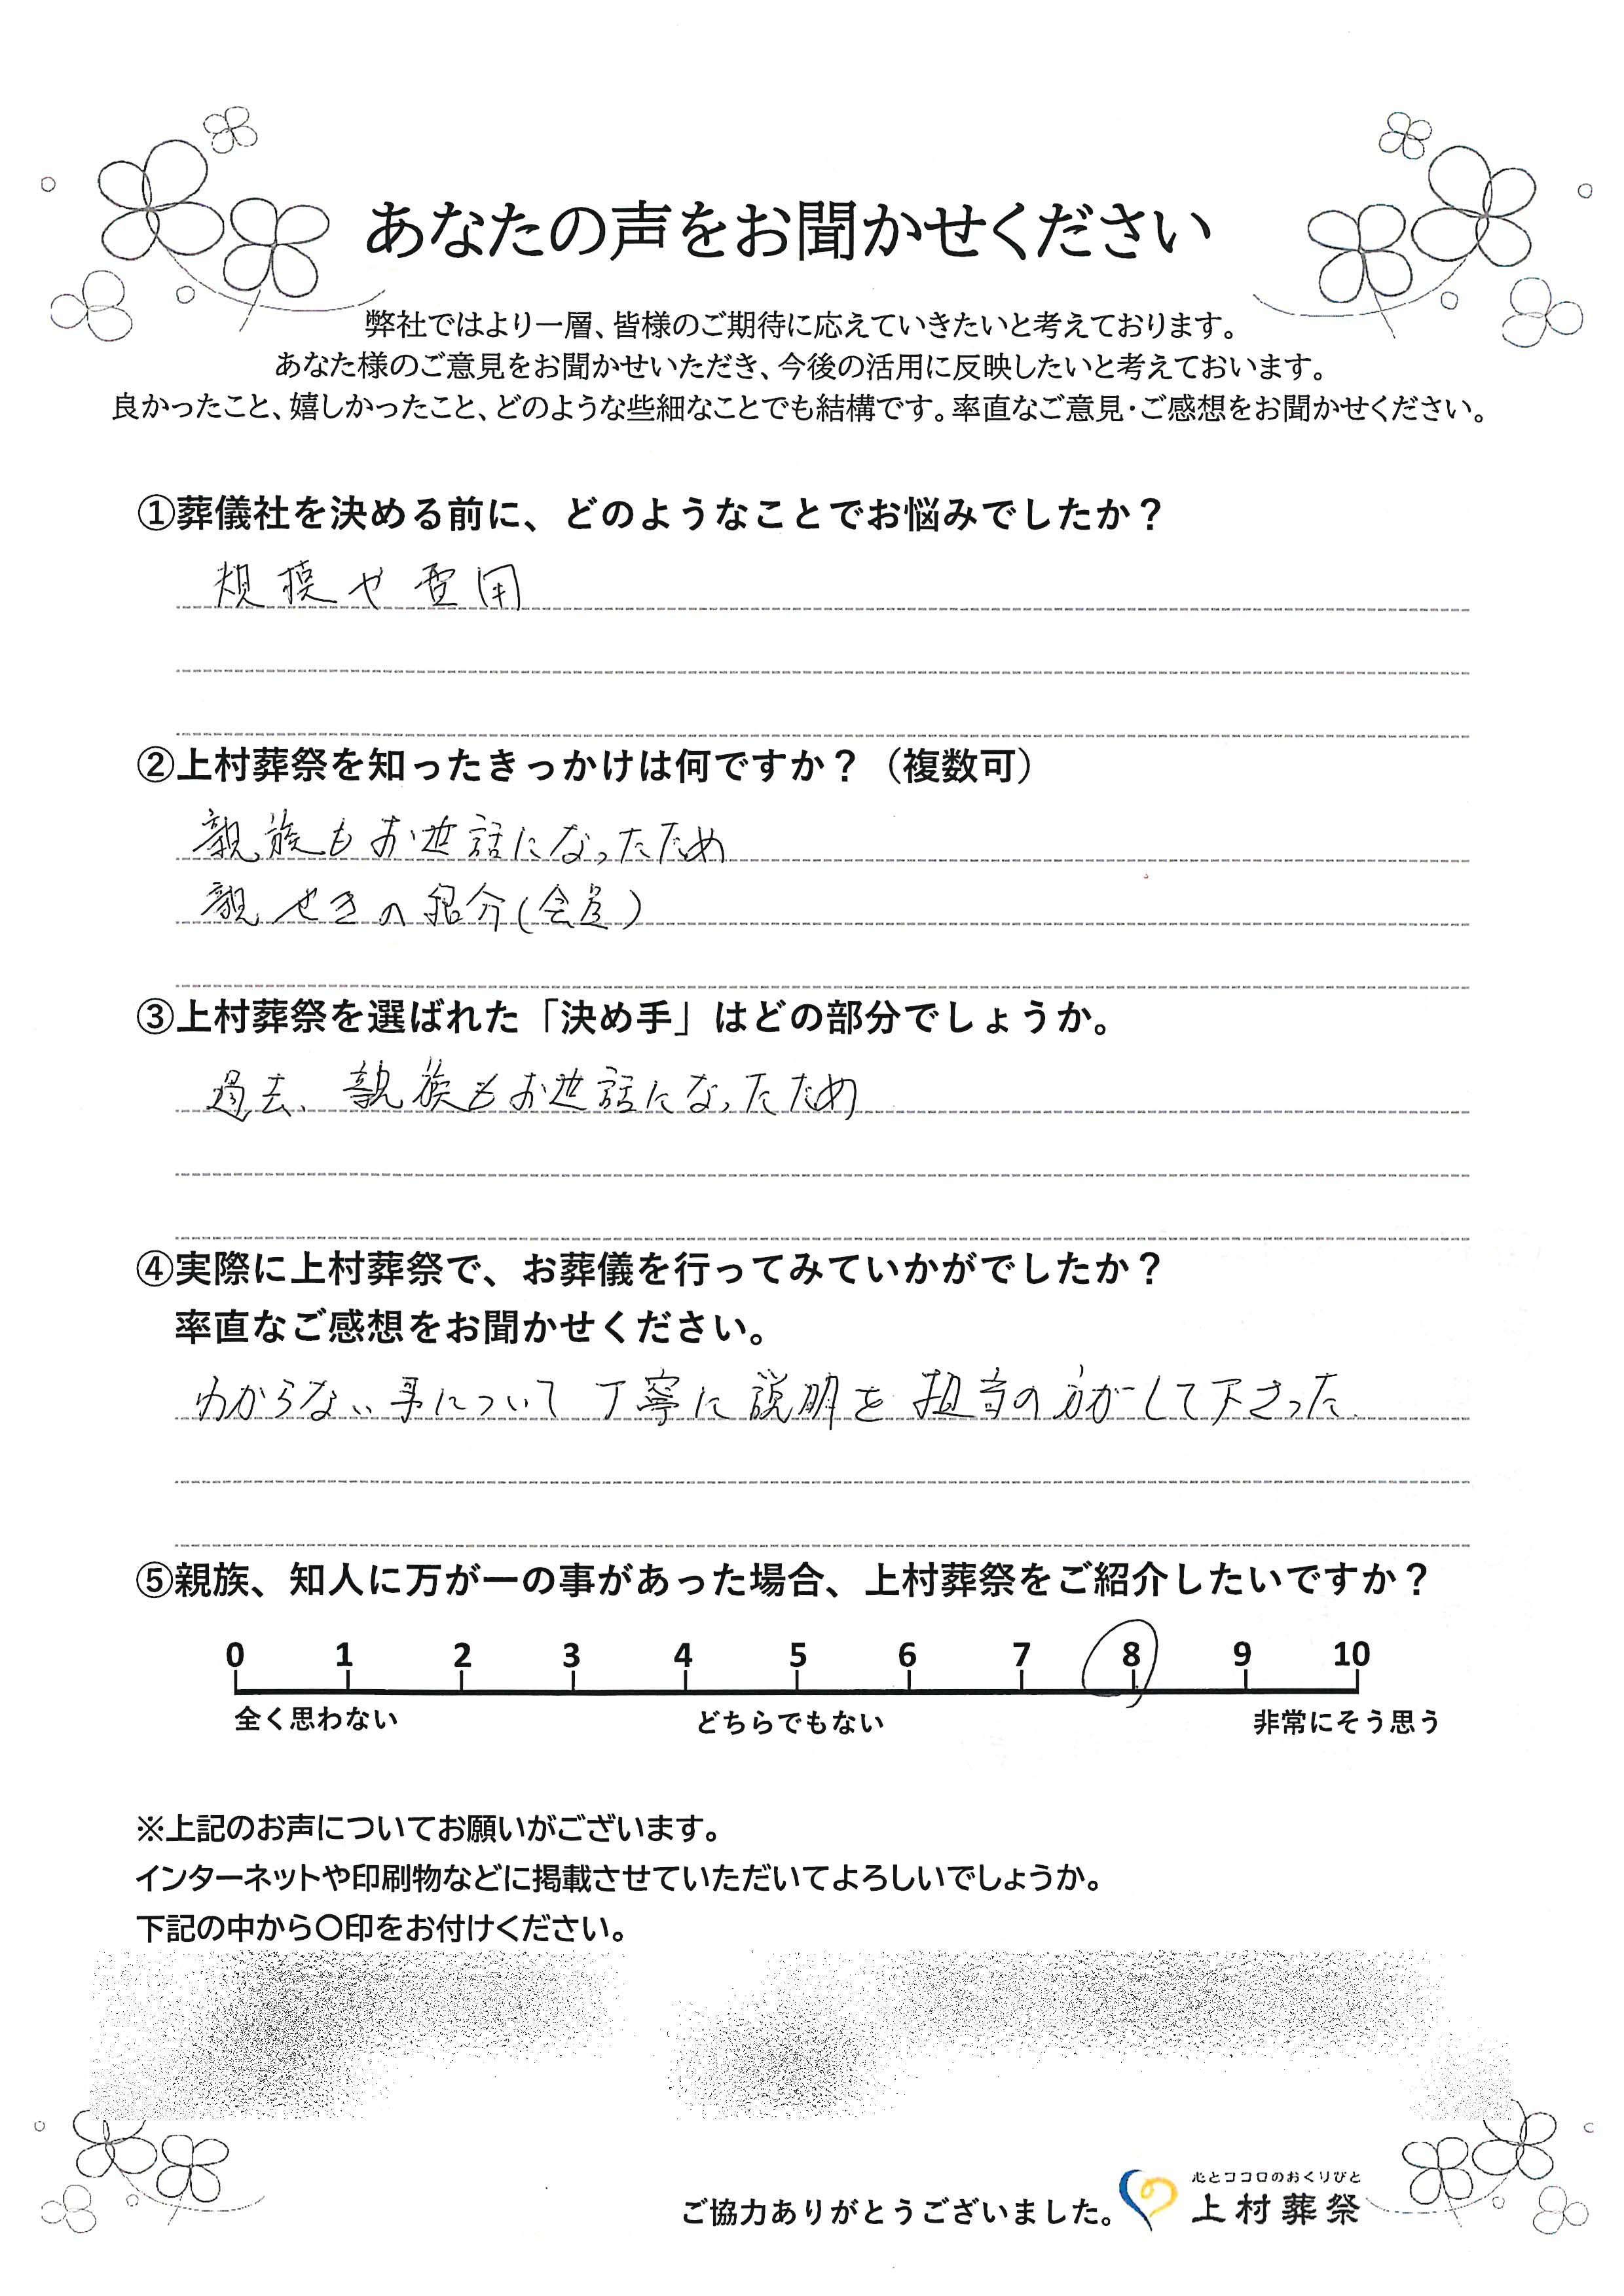 あなたの声をお聞かせください
弊社ではより一層、皆様のご期待に応えていきたいと考えております。
あなた様のご意見をお聞かせいただき、今後の活用に反映したいと考えておいます。
良かったこと、嬉しかったこと、どのような些細なことでも結構です。率直なご意見・ご感想をお聞かせください。
①葬儀社を決める前に、どのようなことでお悩みでしたか？
規模や費用
②上村葬祭を知ったきっかけは何ですか？（複数可）
親族もお世話になったため
親せきの紹介(会員)
③上村葬祭を選ばれた「決め手」はどの部分でしょうか。
過去、親族もお世話になったため
④実際に上村葬祭で、お葬儀を行ってみていかがでしたか？
率直なご感想をお聞かせください。
わからない事について丁寧に説明を担当の方がして下さった.
⑤親族、知人に万が一の事があった場合、上村葬祭をご紹介したいですか？
0 1 2 3 4 5 6 7 8 9 10
全く思わない どちらでもない 非常にそう思う
※上記のお声についてお願いがございます。
インターネットや印刷物などに掲載させていただいてよろしいでしょうか。
下記の中から〇印をお付けください。
心とココロのおくりびと
ご協力ありがとうございました。 上村葬祭